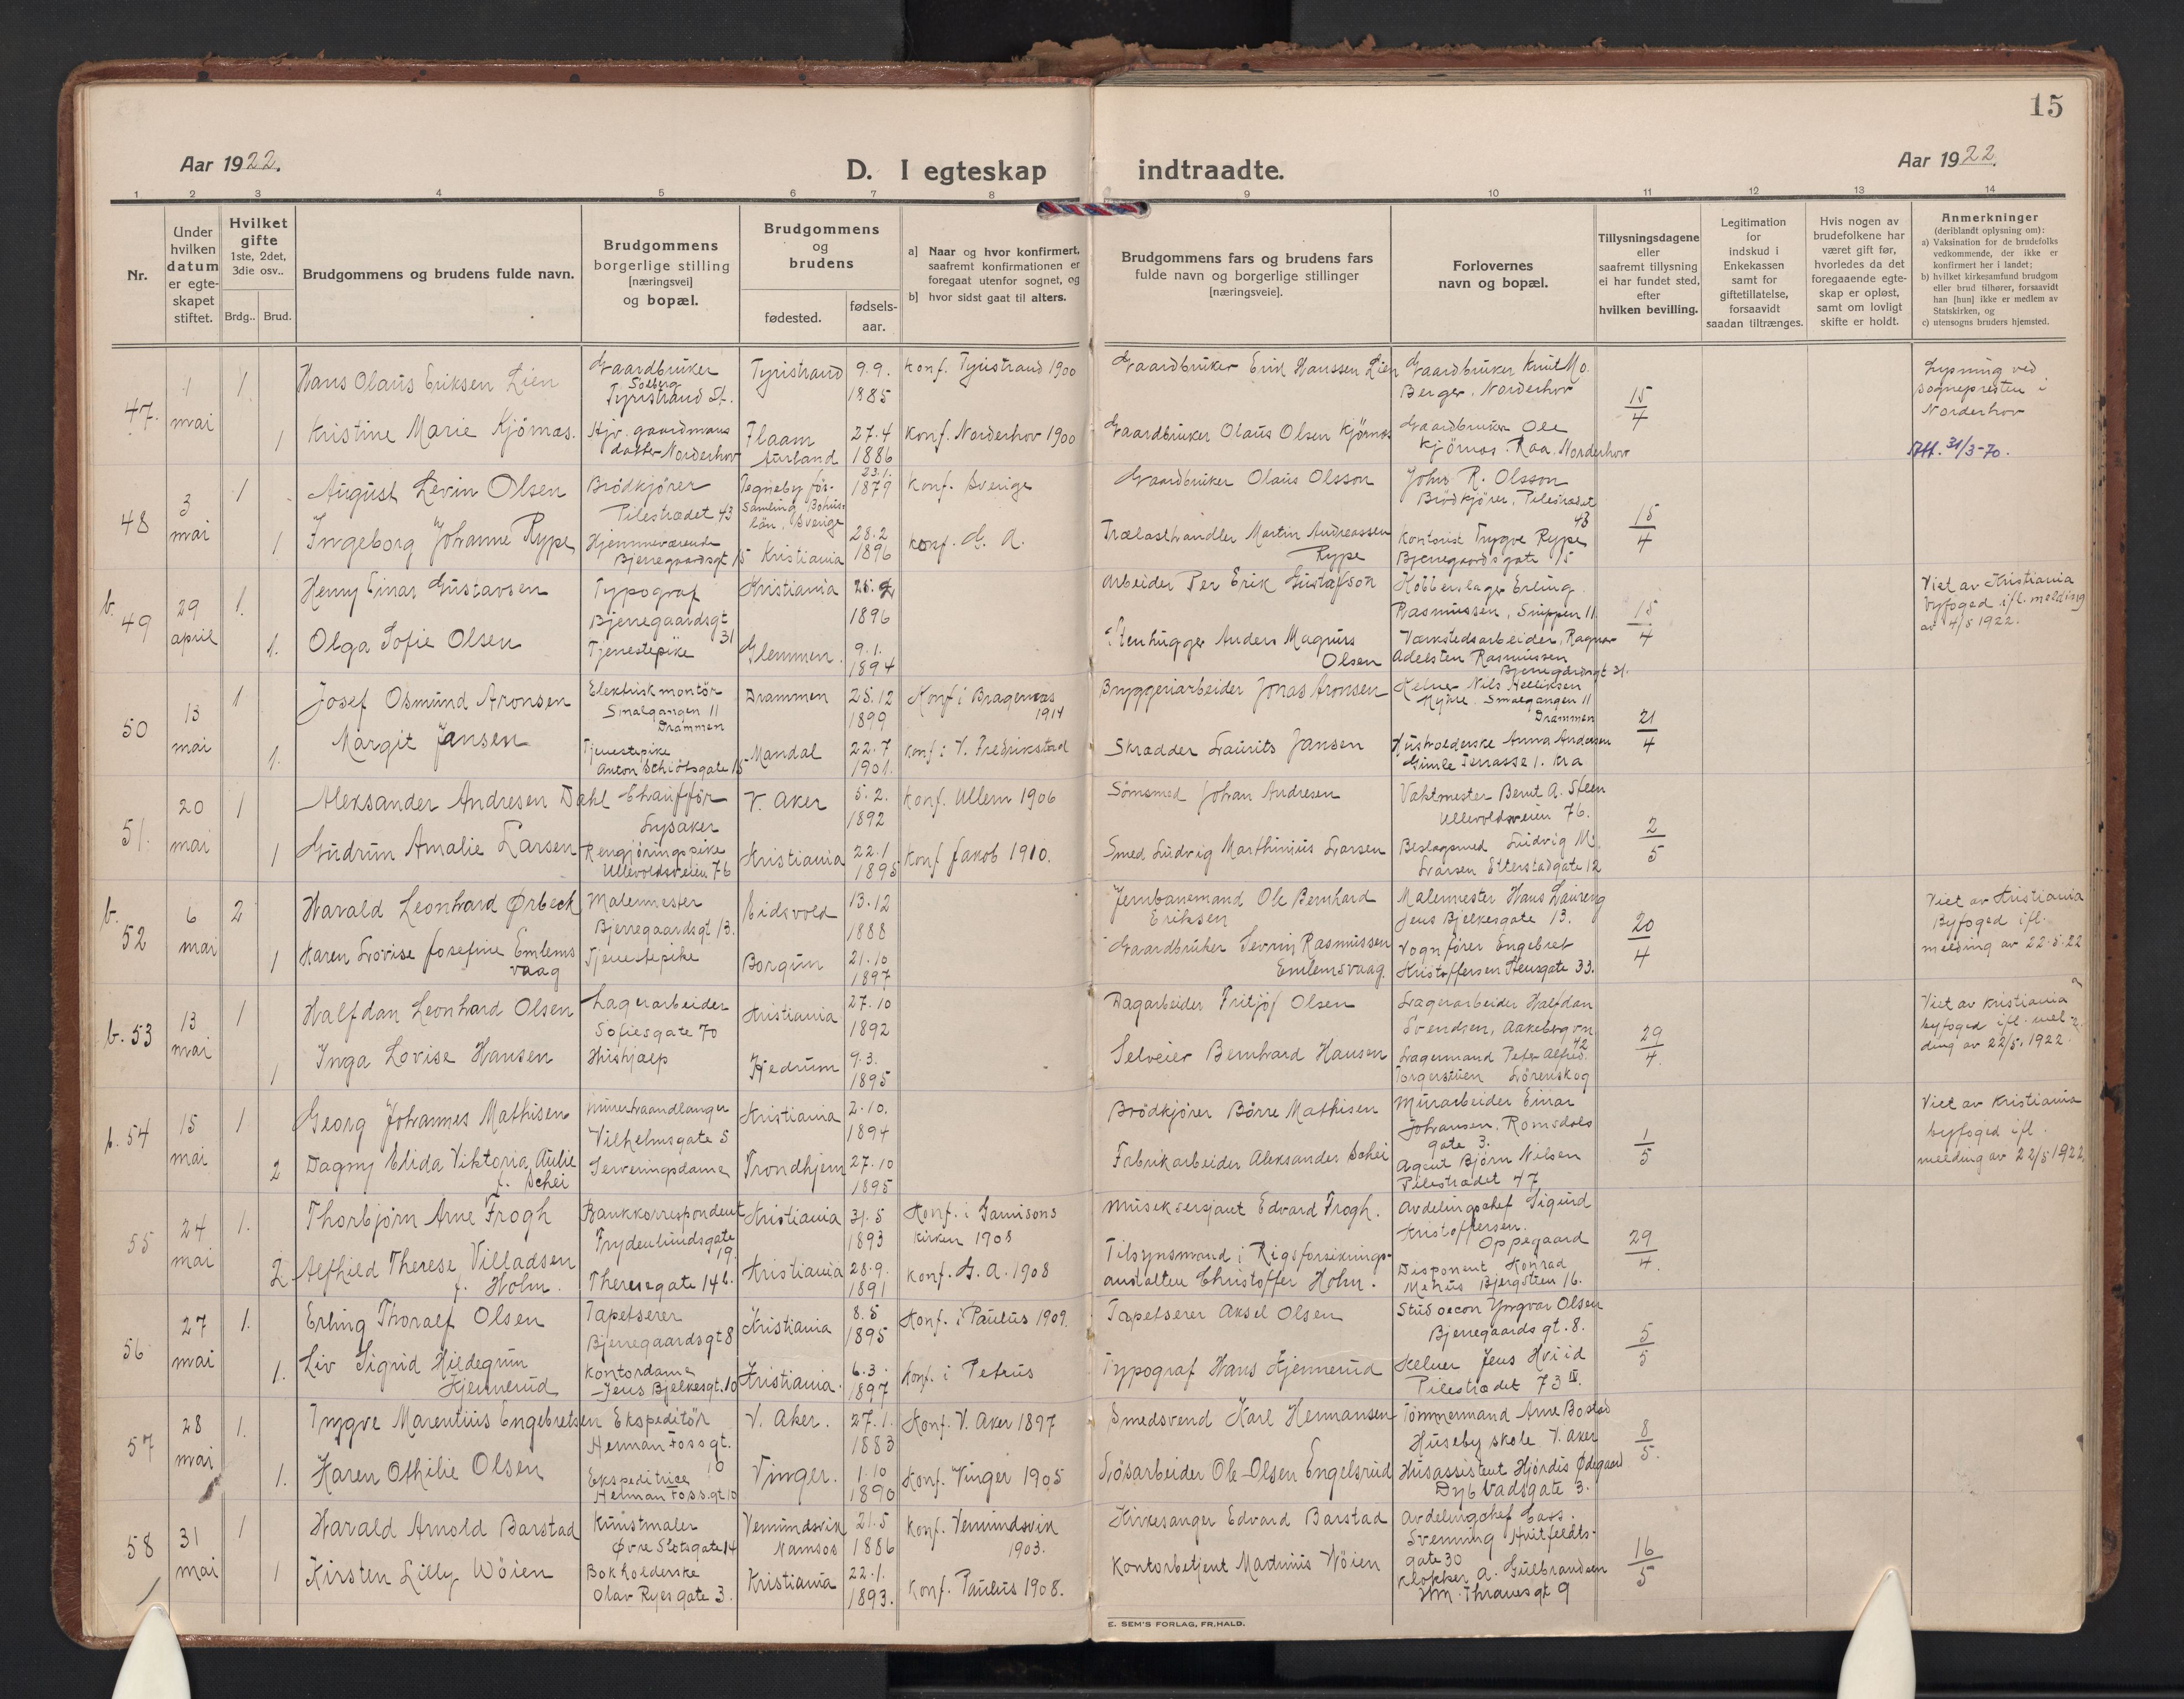 15
Aar 1922.
D. I egteskap indtraadte.
Aar 1922.
1 2 3 4 5 6 7 8 9 10 11 12 13 14
Nr.
Under hvilken datum er egteskapet stiftet.
Hvilket gifte 1ste, 2det, 3die osv..
Brdg.. Brud.
Brudgommens og brudens fulde navn.
Brudgommens borgerlige stilling [næringsvei] og bopæl.
Brudgommens og brudens
fødested.
fødselsaar.
a] Naar og hvor konfirmert, saafremt konfirmationen er foregaat utenfor sognet, og
b] hvor sidst gaat til alters.
Brudgommens fars og brudens fars fulde navn og borgerlige stillinger [næringsveie].
Forlovernes navn og bopæl.
Tillysningsdagene eller saafremt tillysning ei har fundet sted, efter hvilken bevilling.
Legitimation for indskud i Enkekassen samt for giftetillatelse, forsaavidt saadan tiltrænges.
Hvis nogen av brudefolkene har været gift før, hvorledes da det foregaaende egteskap er opløst, samt om lovligt skifte er holdt.
Anmerkninger (deriblandt oplysning om):
a) Vaksination for de brudefolks vedkommende, der ikke er konfirmert her i landet;
b) hvilket kirkesamfund brudgom eller brud tilhører, forsaavidt han [hun] ikke er medlem av Statskirken, og
c) utensogns bruders hjemsted.
47. 1 mai 1 Hans Olaus Eriksen Lien Gaardbruker Solberg Tyristrand St. Tyristrand 9.9. 1885 Konf. Tyristrand 1900 Gaardbruker Erik Hanssen Lien Gaardbruker Knut Mo Berger. Norderhov 15/4 Lysning ved sognepresten i Norderhov
1 Kristine Marie Kjörnas. Hjv. gaardmans datter Norderhov Flaam Aurland 27.4 1886 Konf. Norderhov 1900 Gaardbruker Olaus Olsen Kjørnas Gaardbruker Ole Kjörnas. Raa. Norderhov Att. 31/3-70.
48 3 mai 1 August Levin Olsen Brödkjörer Pilestrædet 43 Tegneby församling Bohuslän, Sverige 23.1. 1879 Konf. Sverige Gaardbruker Olaus Olsson John R. Olsson Brödkjører, Pilestrædet 43 15/4
1 Ingeborg Johanne Rype Hjemmeværende Bjerregaardsgt 15 Kristiania 28.2 1896 Konf. G. A. Trælasthandler Martin Andreassen Rype Kontorist Trygve Rype Bjerregaardsgate 15
b. 49 29 april 1. Henry Einar Gustavsen Typograf Bjerregaardsgt 31 Kristiania 1896 Arbeider Per Erik Gustafson Kobberslager Erling Rasmussen, Snippen 11 15/4 Viet av Kristiania byfoged ifl. melding av 4/5 1922.
1. Olga Sofie Olsen Tjenestepike Glemmen. 9.1. 1894 Stenhugger Anders Magnus Olsen Værkstedsarbeider, Ragnar Adelsten Rasmussen Bjerregårdsgt 31.
50 13 mai 1 Josef Osmund Aronsen Elektriskmontör Smalgangen 11 Drammen Drammen 25.12 1899 Konf i Bragernes 1914 Bryggeriarbeider Jonas Aronsen Kelner Nils Helliksen Myhre. Smalgangen 11 Drammen 21/4
1. Margit Jansen Tjenestepike Anton Schiötsgate 15 Mandal 22.7 1901. Konf i V. Fredrikstad Skrædder Laurits Jansen Husholderske Anna Andersen Gimle Terrasse 1. Kra
51. 20 mai 1 Aleksander Andresen Dahl Chauffför Lysaker V. Aker 5.2. 1892 Konf. Ullern 1906 Sömsmed Johan Andresen Vaktmester Bernt A. Steen Ullevoldsveien 76. 2/5
1 Gudrun Amalie Larsen Rengjöringspike Ullevoldsveien 76 Kristiania 22.1 1895 Konf Jakob 1910. Smed Ludvig Marthinius Larsen Beslagsmed Ludvig M. Larsen Etterstadgate 12
b. 52 6 mai 2 Harald Leonhard Ørbeck Malermester Bjerregaardsgt 13. Eidsvold 13.12 1888 Jernbanemand Ole Bernhard Eriksen Malermester Hans Laureng Jens Bjelkesgate 13. 20/4 Viet av Kristiania Byfoged ifl. melding av 22.5.22
1 Karen Lovise Josefine Emlemsvaag Tjenestepike Borgun 21.10 1897 Gaardbruker Sevrin Rasmussen Emlemsvaag. Vognfører Engebret Kristoffersen Stensgate 33.
b. 53 13 mai 1 Halfdan Leonhard Olsen Lagerarbeider Sofiesgate 70 Kristiania 27.10 1892 Dagarbeider Fritjof Olsen Lagerarbeider Halfdan Svendsen, Aakebergvn 42 29/4. Viet av Kristiania byfoged ifl. melding av 22/5. 1922.
1 Inga Lovise Hansen Hushjælp 9.3. 1895 Selveier Bernhard Hansen Lagermand Peter Alfred. Torgerstuen Lörenskog
b. 54 15 mai 1 Georg Johannes Mathisen Murerhaandlanger Vilhelmsgate 5 Kristiania 2.10. 1894 Brödkjörer Börre Mathisen Murarbeider Einar Johansen, Romsdalsgate 3. 1/5 Viet av Kristiania byfoged ifl. melding av 22/5 1922.
2 Dagny Elida Viktoria Aulie f. Schei Serveringsdame Trondhjem 27.10 1895 Fabrikarbeider Aleksander Schei Agent Björn Nilsen Pilestrædet 47
55 24 mai 1. Thorbjörn Arne Frogh Bankkorrespondent Frydenlundsgate 19. Kristiania 31.5 1893 Konf. i Garnisonskirken 1908 Musiksersjant Edvard Frogh. Avdelingschef Sigurd Kristoffersen. Oppegaard 29/4.
2 Alfhild Therese Villadsen f. Holm. Theresegate 14 b. Kristiania 28.9. 1891 Konf. G. A. 1908 Tilsynsmand i Rigsforsikringsanstalten Christoffer Holm. Disponent Konrad Mehus Bjergstien 16.
56 27 mai 1. Erling Thoralf Olsen Tapetserer Bjerregaardsgt 8 Kristiania 8.5 1895 Konf. i Paulus 1909. Tapetserer Aksel Olsen Stud oecon Yngvar Olsen Bjerregaardsgt. 8. 5/5
1. Liv Sigrid Hildegrun Hjennerud Kontordame Jens Bjelkesgt. 10 Kristiania. 6.3. 1897 Konf. i Petrus Typograf Hans Hjennerud Kelner Jens Hviid Pilestrædet 73 IV.
57 28 mai 1. Trygve Marentius Engebretsen Ekspeditör Herman Fossgt. 10 V. Aker. 27.1. 1883 Konf. V. Aker 1897 Smedsvend Karl Hermansen Tömmermand Arne Bostad Huseby skole V. Aker 8/5.
1. Karen Othilie Olsen Ekspeditrice Herman Foss.gt 10 Vinger. 1.10 1890 Konf. Vinger 1905 Lösarbeider Ole Olsen Engelsrud Husassistent Hjördis Ødegaard Dybvadsgate 3.
58 31 mai 1 Harald Arnold Barstad Kunstmaler Øvre Slotsgate 14 Vemundsvik Namsos 21.5 1886 Konf. Vemundsvik 1903. Kirkesanger Edvard Barstad Avdelingchef Svenning Hvitfeldtsgate 30 16/5
1 Kirsten Lilly Wöien Bokholderske Olav Ryes gate 3. Kristiania 22.1. 1893. Konf. Paulus 1908. Kontorbetjent Martinius Wöien Klokker A. Gulbrandsen Hm. Thranesgt 9
E. SEM'S FORLAG, FR.HALD.